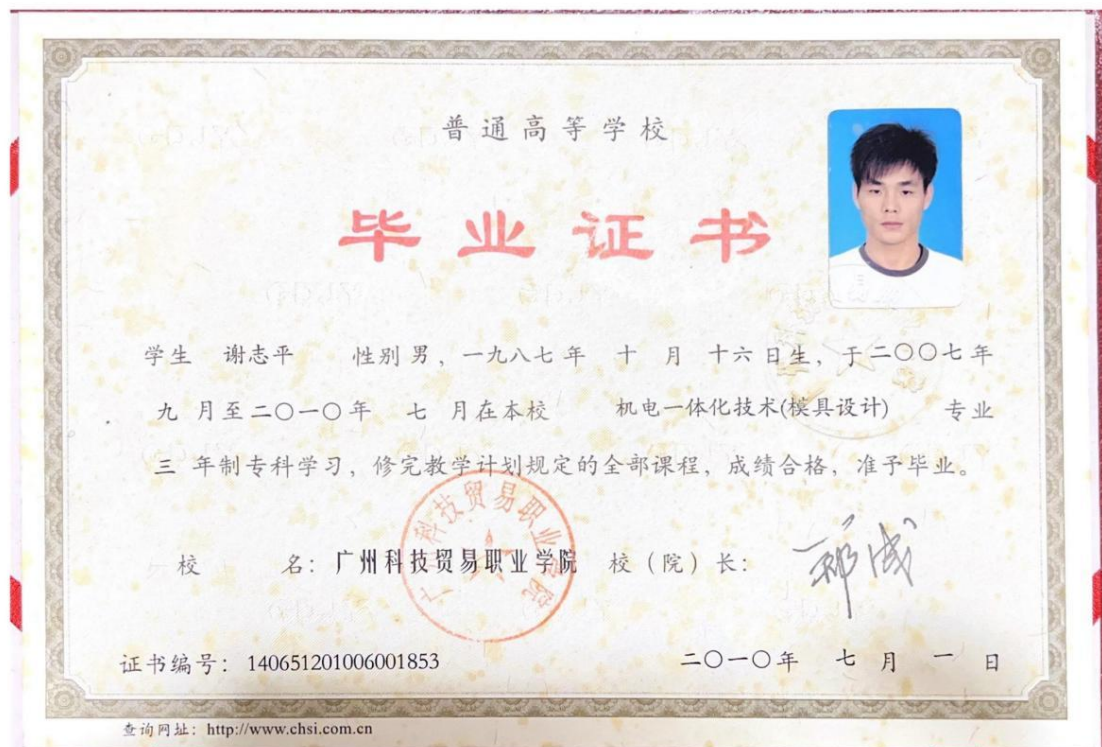 普通高等学校
毕业证书
学生 谢志平 性别 男，一九八七年 十 月 十六 日生，于二〇〇七年
九 月至二〇一〇年 七 月在本校 机电一体化技术(模具设计) 专业
三 年制专科学习，修完教学计划规定的全部课程，成绩合格，准予毕业。
校 名：广州科技贸易职业学院 校（院）长：
广州科技贸易职业学院
证书编号：140651201006001853 二〇一〇年 七 月 一 日
查询网址：http://www.chsi.com.cn